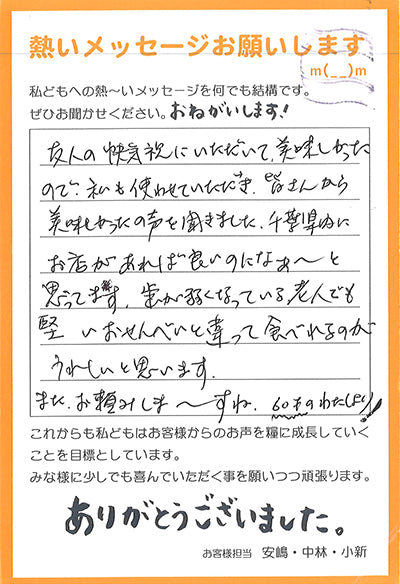 熱いメッセージお願いします
m(__)m
私どもへの熱〜いメッセージを何でも結構です。
ぜひお聞かせください。おねがいします！
友人の快気祝にいただいて、美味しかった
ので、私も使わせていただき、皆さんから
美味しかったの声を聞きました。千葉県内に
お店があれば良いのになぁ〜と
思ってます。歯が弱くなっている老人でも
堅いおせんべいと違って食べれるのが
うれしいと思います。
また、お頼みしま〜すね。60才のわたし
これからも私どもはお客様からのお声を糧に成長していく
ことを目標としています。
みな様に少しでも喜んでいただく事を願いつつ頑張ります。
ありがとうございました。
お客様担当 安嶋・中林・小新